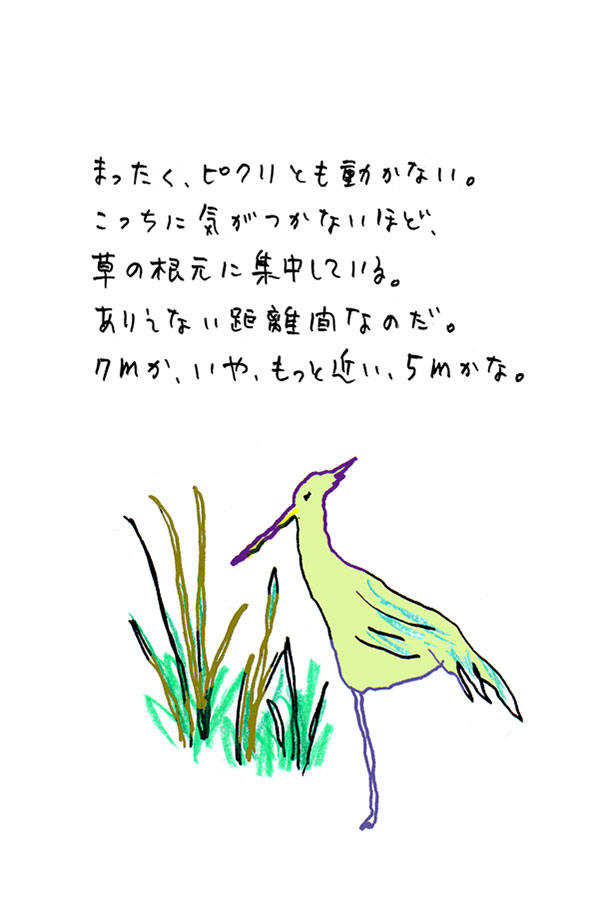 まったく、ピクリとも動かない。
こっちに気がつかないほど、
草の根元に集中している。
ありえない距離間なのだ。
7mか、いや、もっと近い、5mかな。